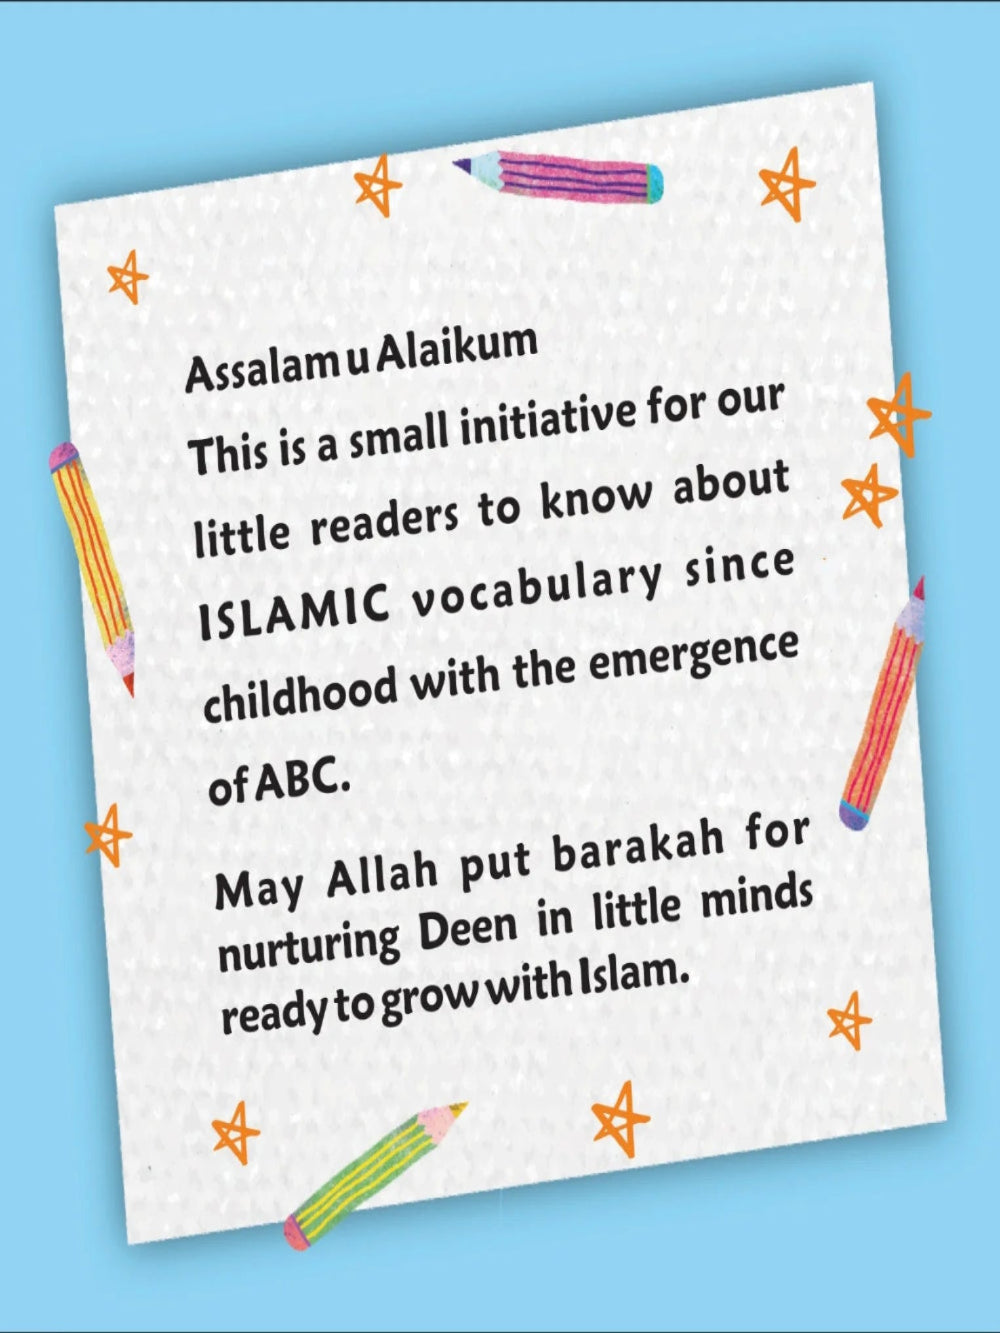 Assalam u Alaikum
This is a small initiative for our
little readers to know about
ISLAMIC vocabulary since
childhood with the emergence
of ABC.
May Allah put barakah for
nurturing Deen in little minds
ready to grow with Islam.